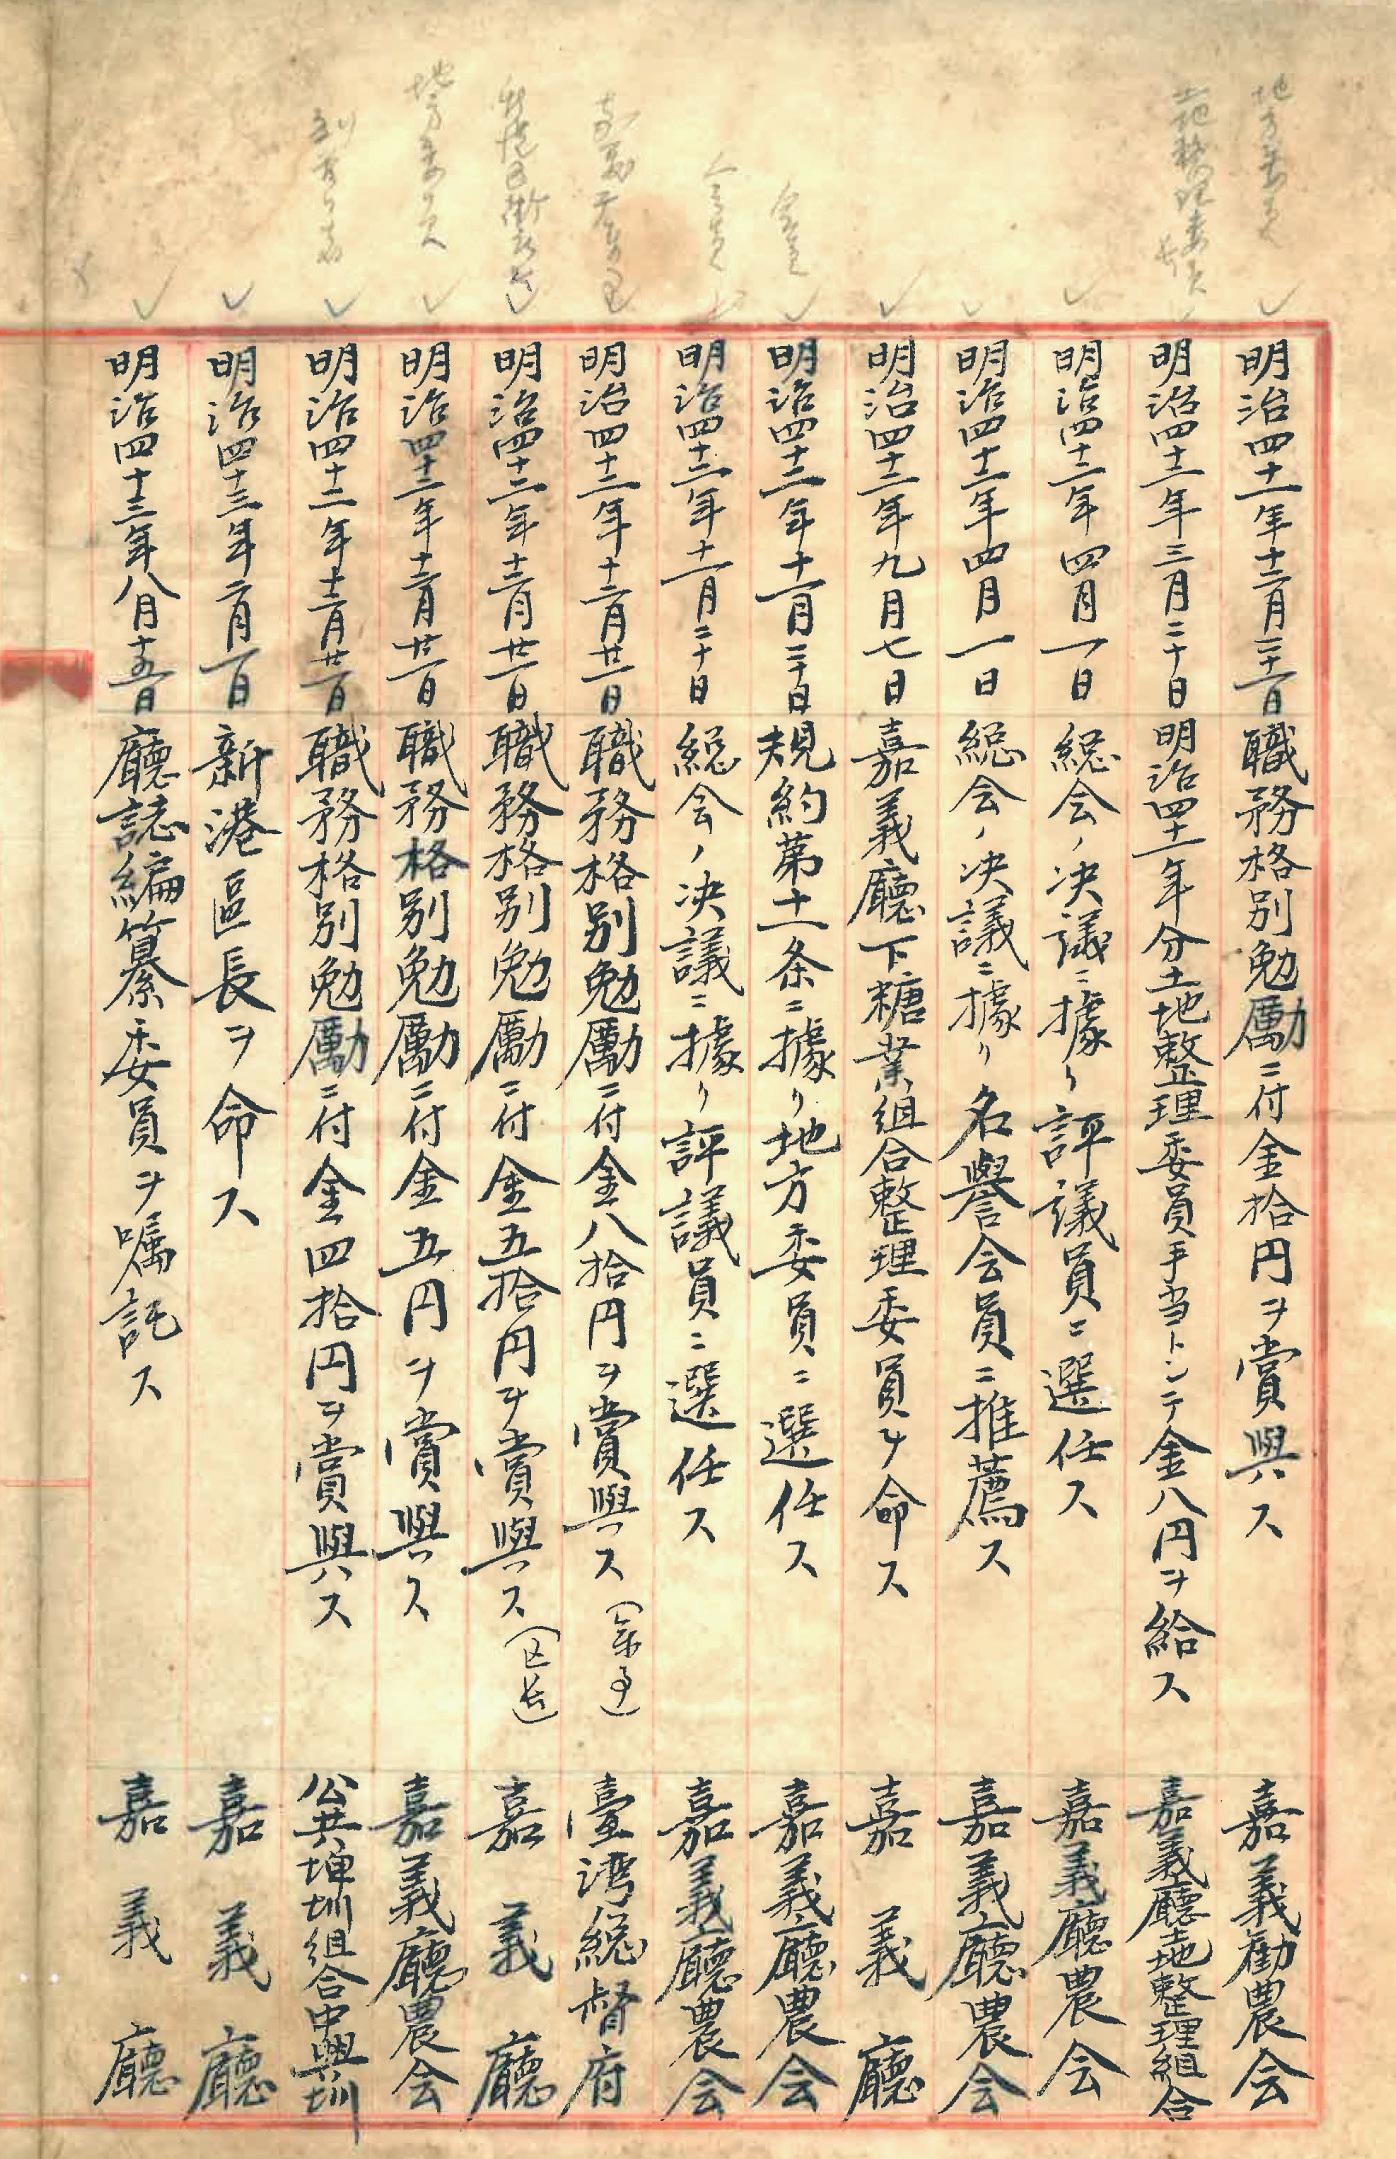 明治四十一年十二月二十一日 職務格別勉励ニ付金拾円ヲ賞與ス 嘉義勸農会
明治四十二年三月二十日 明治四十一年分土地整理委員手当トシテ金八円ヲ給ス 嘉義廳土地整理組合
明治四十二年四月一日 総会ノ决議ニ據リ評議員ニ選任ス 嘉義廳農会
明治四十二年四月一日 総会ノ决議ニ據リ名譽会員ニ推薦ス 嘉義廳農会
明治四十二年九月七日 嘉義廳下糖業組合整理委員ヲ命ス 嘉義廳
明治四十二年十一月二十日 規約第十一条ニ據リ地方委員ニ選任ス 嘉義廳農会
明治四十二年十一月二十日 総会ノ决議ニ據リ評議員ニ選任ス 嘉義廳農会
明治四十二年十二月廿一日 職務格別勉励ニ付金八拾円ヲ賞與ス 臺湾総督府
明治四十二年十二月廿一日 職務格別勉励ニ付金五拾円ヲ賞與ス(区長) 嘉義廳
明治四十二年十二月廿一日 職務格別勉励ニ付金五円ヲ賞與ス 嘉義廳農会
明治四十二年十二月廿一日 職務格別勉励ニ付金四拾円ヲ賞與ス 公共埤圳組合中興圳
明治四十三年二月一日 新港區長ヲ命ス 嘉義廳
明治四十三年八月十五日 廳誌編纂委員ヲ嘱託ス 嘉義廳